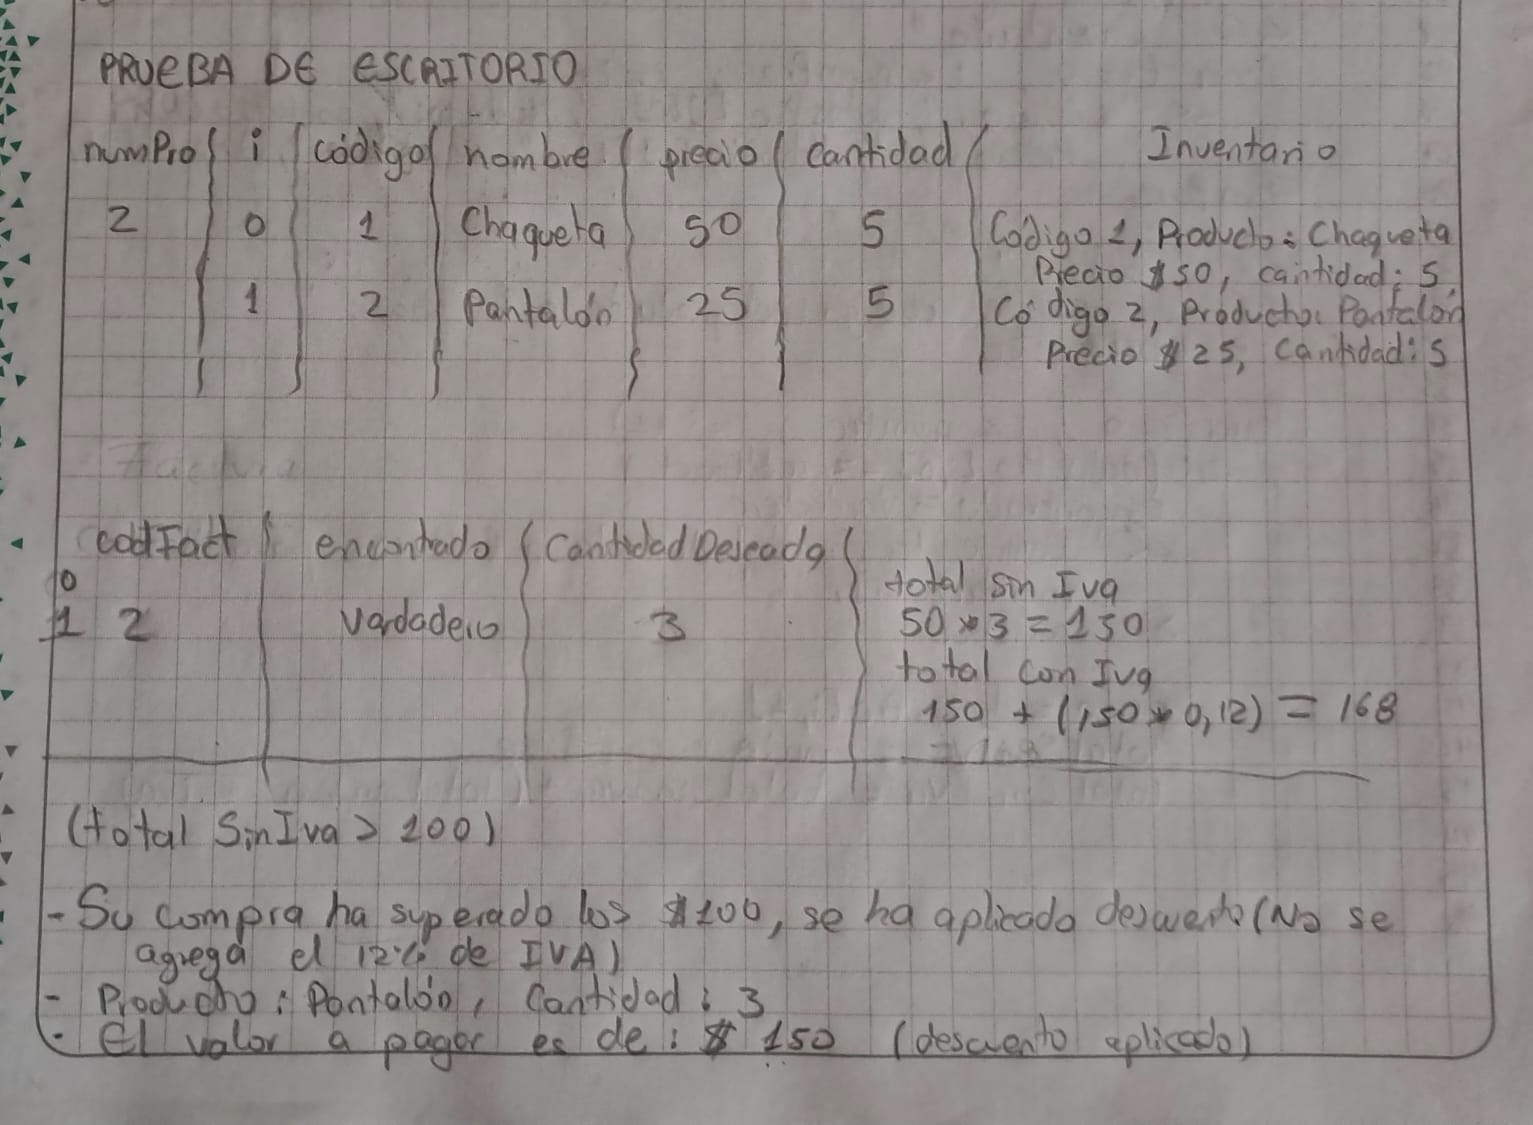 PRUEBA DE ESCRITORIO
numPro i código nombre precio cantidad Inventario
2 0 1 Chaqueta 50 5 Código 1, Producto: Chaqueta
Precio $50, cantidad: 5,
1 2 Pantalón 25 5 Código 2, Producto: Pantalón
Precio $25, Cantidad: 5
codFact encontrado Cantidad Deseada
0 total sin Iva
1 2 Verdadero 3 50 * 3 = 150
total con Iva
150 + (150 * 0,12) = 168
(total SinIva > 100)
- Su compra ha superado los $100, se ha aplicado descuento (No se
agrega el 12% de IVA)
- Producto: Pantalón, Cantidad: 3
- El valor a pagar es de: $ 150 (descuento aplicado)